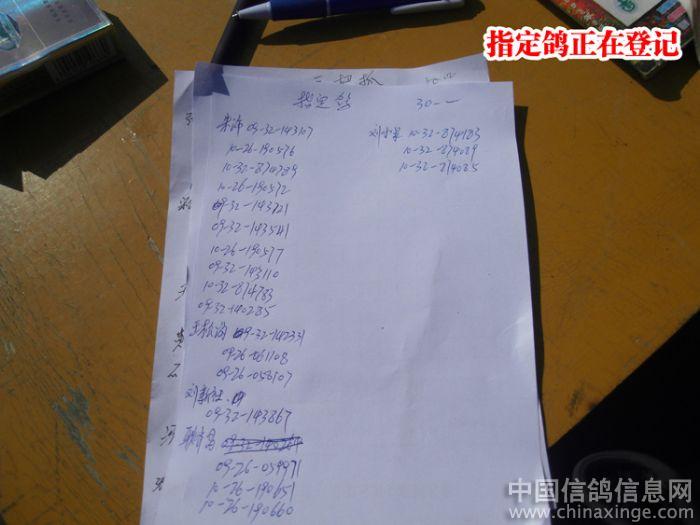 指定鸽正在登记
指定鸽 30-一
朱沛 09-32-143107
10-26-190576
10-32-874789
10-26-190572
09-32-143721
09-32-143541
10-26-190577
09-32-143110
10-32-874783
09-32-140285
王 09-32-142331
09-26-061108
09-26-058107
刘新
09-32-143867
09-26-039971
10-26-190651
10-26-190660
刘 10-32-874183
10-32-874089
10-32-874085
中国信鸽信息网
www.chinaxinge.com